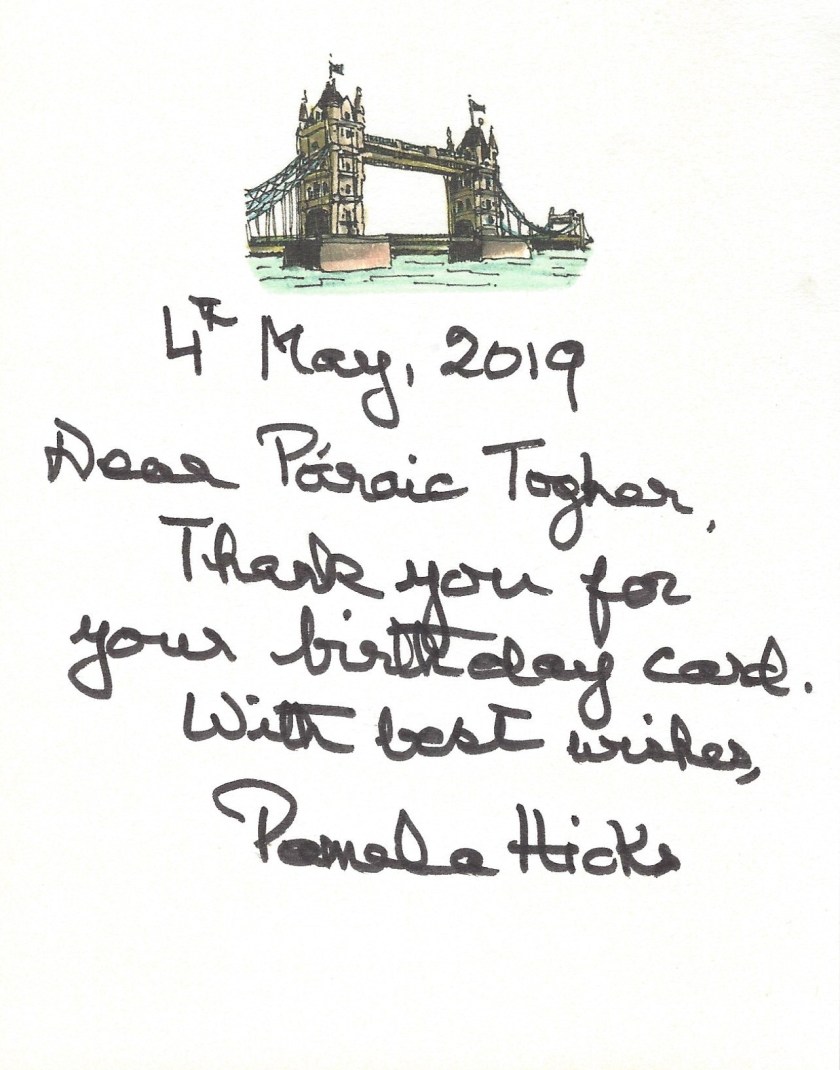 4th May, 2019
Dear Páraic Togher,
Thank you for
your birthday card.
With best wishes,
Pamela Hicks